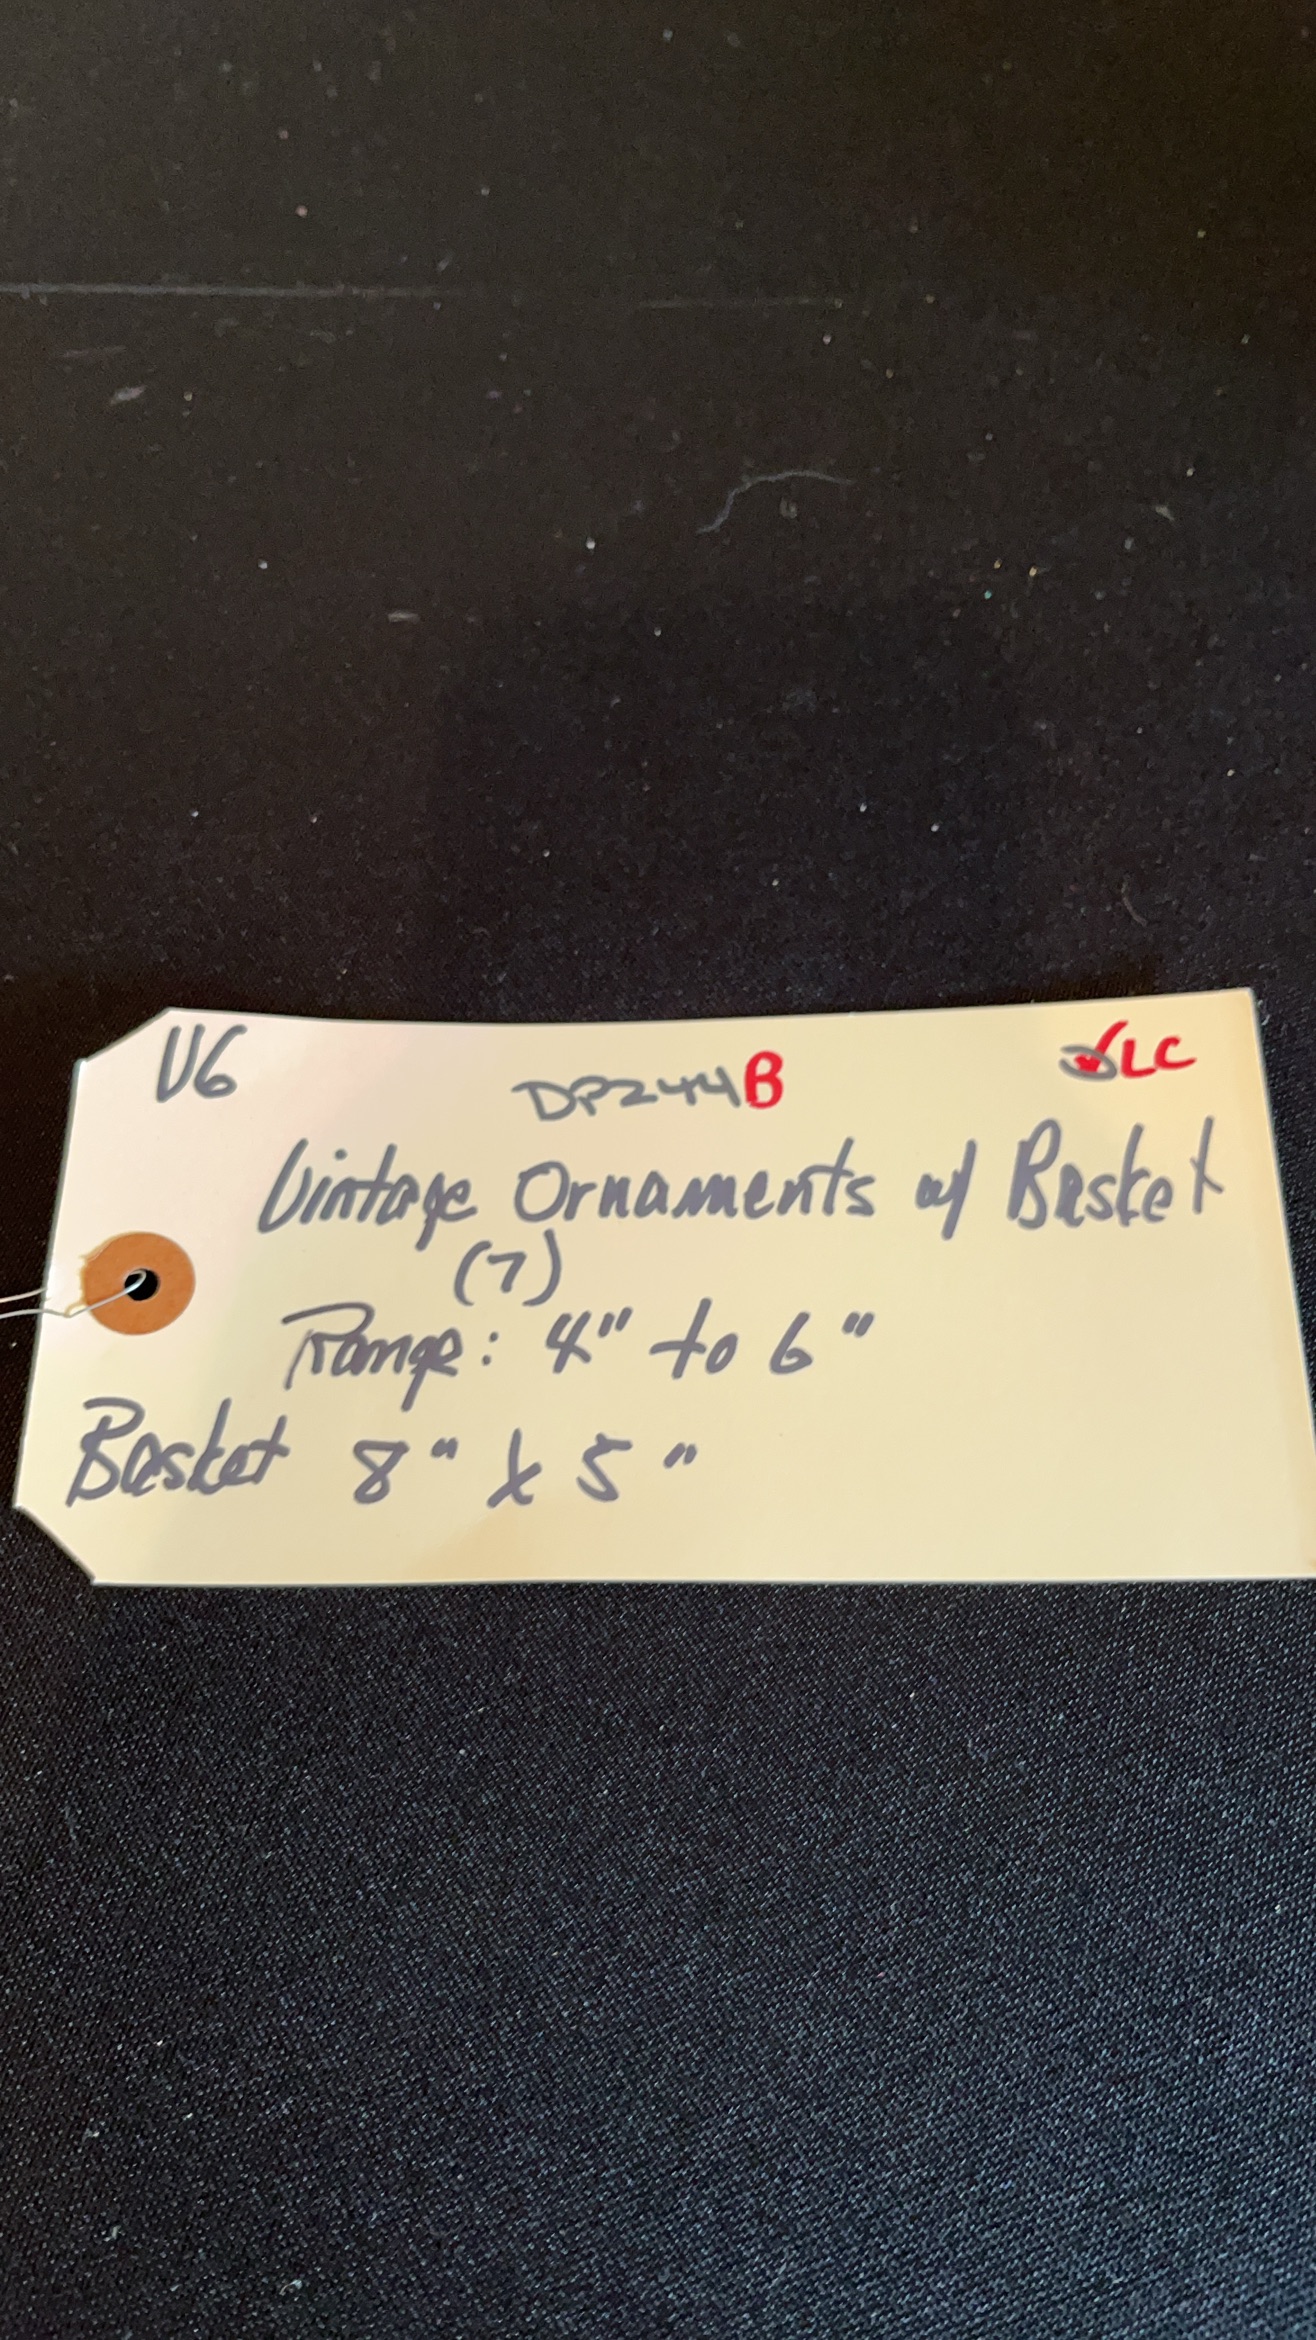 V6 DP244B ✓LC
Vintage Ornaments w/ Basket
(7)
Range: 4" to 6"
Basket 8" x 5"